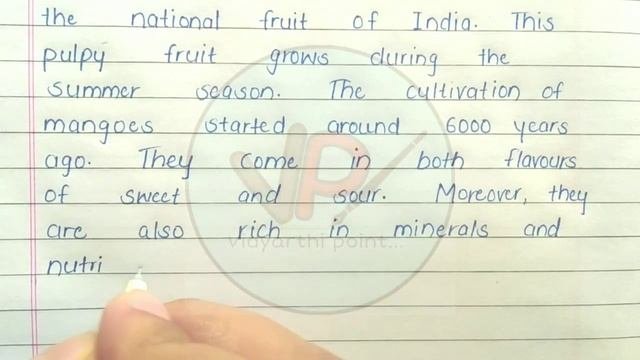 the national fruit of India. This
pulpy fruit grows during the
summer season. The cultivation of
mangoes started around 6000 years
ago. They come in both flavours
of sweet and sour. Moreover, they
are also rich in minerals and
nutri
VP
vidyarthi point...